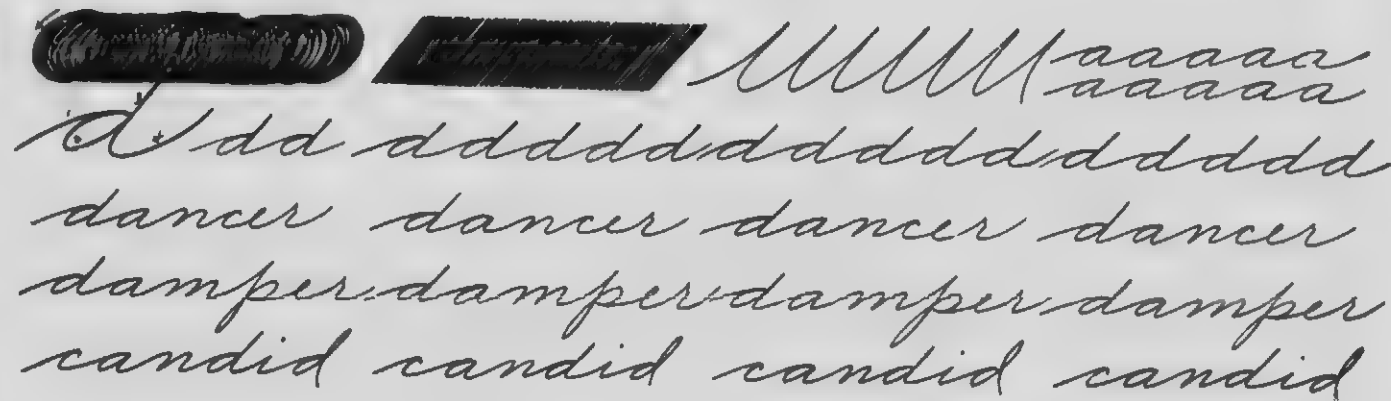 aaaaa
aaaaa
d dd ddddd ddddd ddddd
dancer dancer dancer dancer
damper damper damper damper
candid candid candid candid